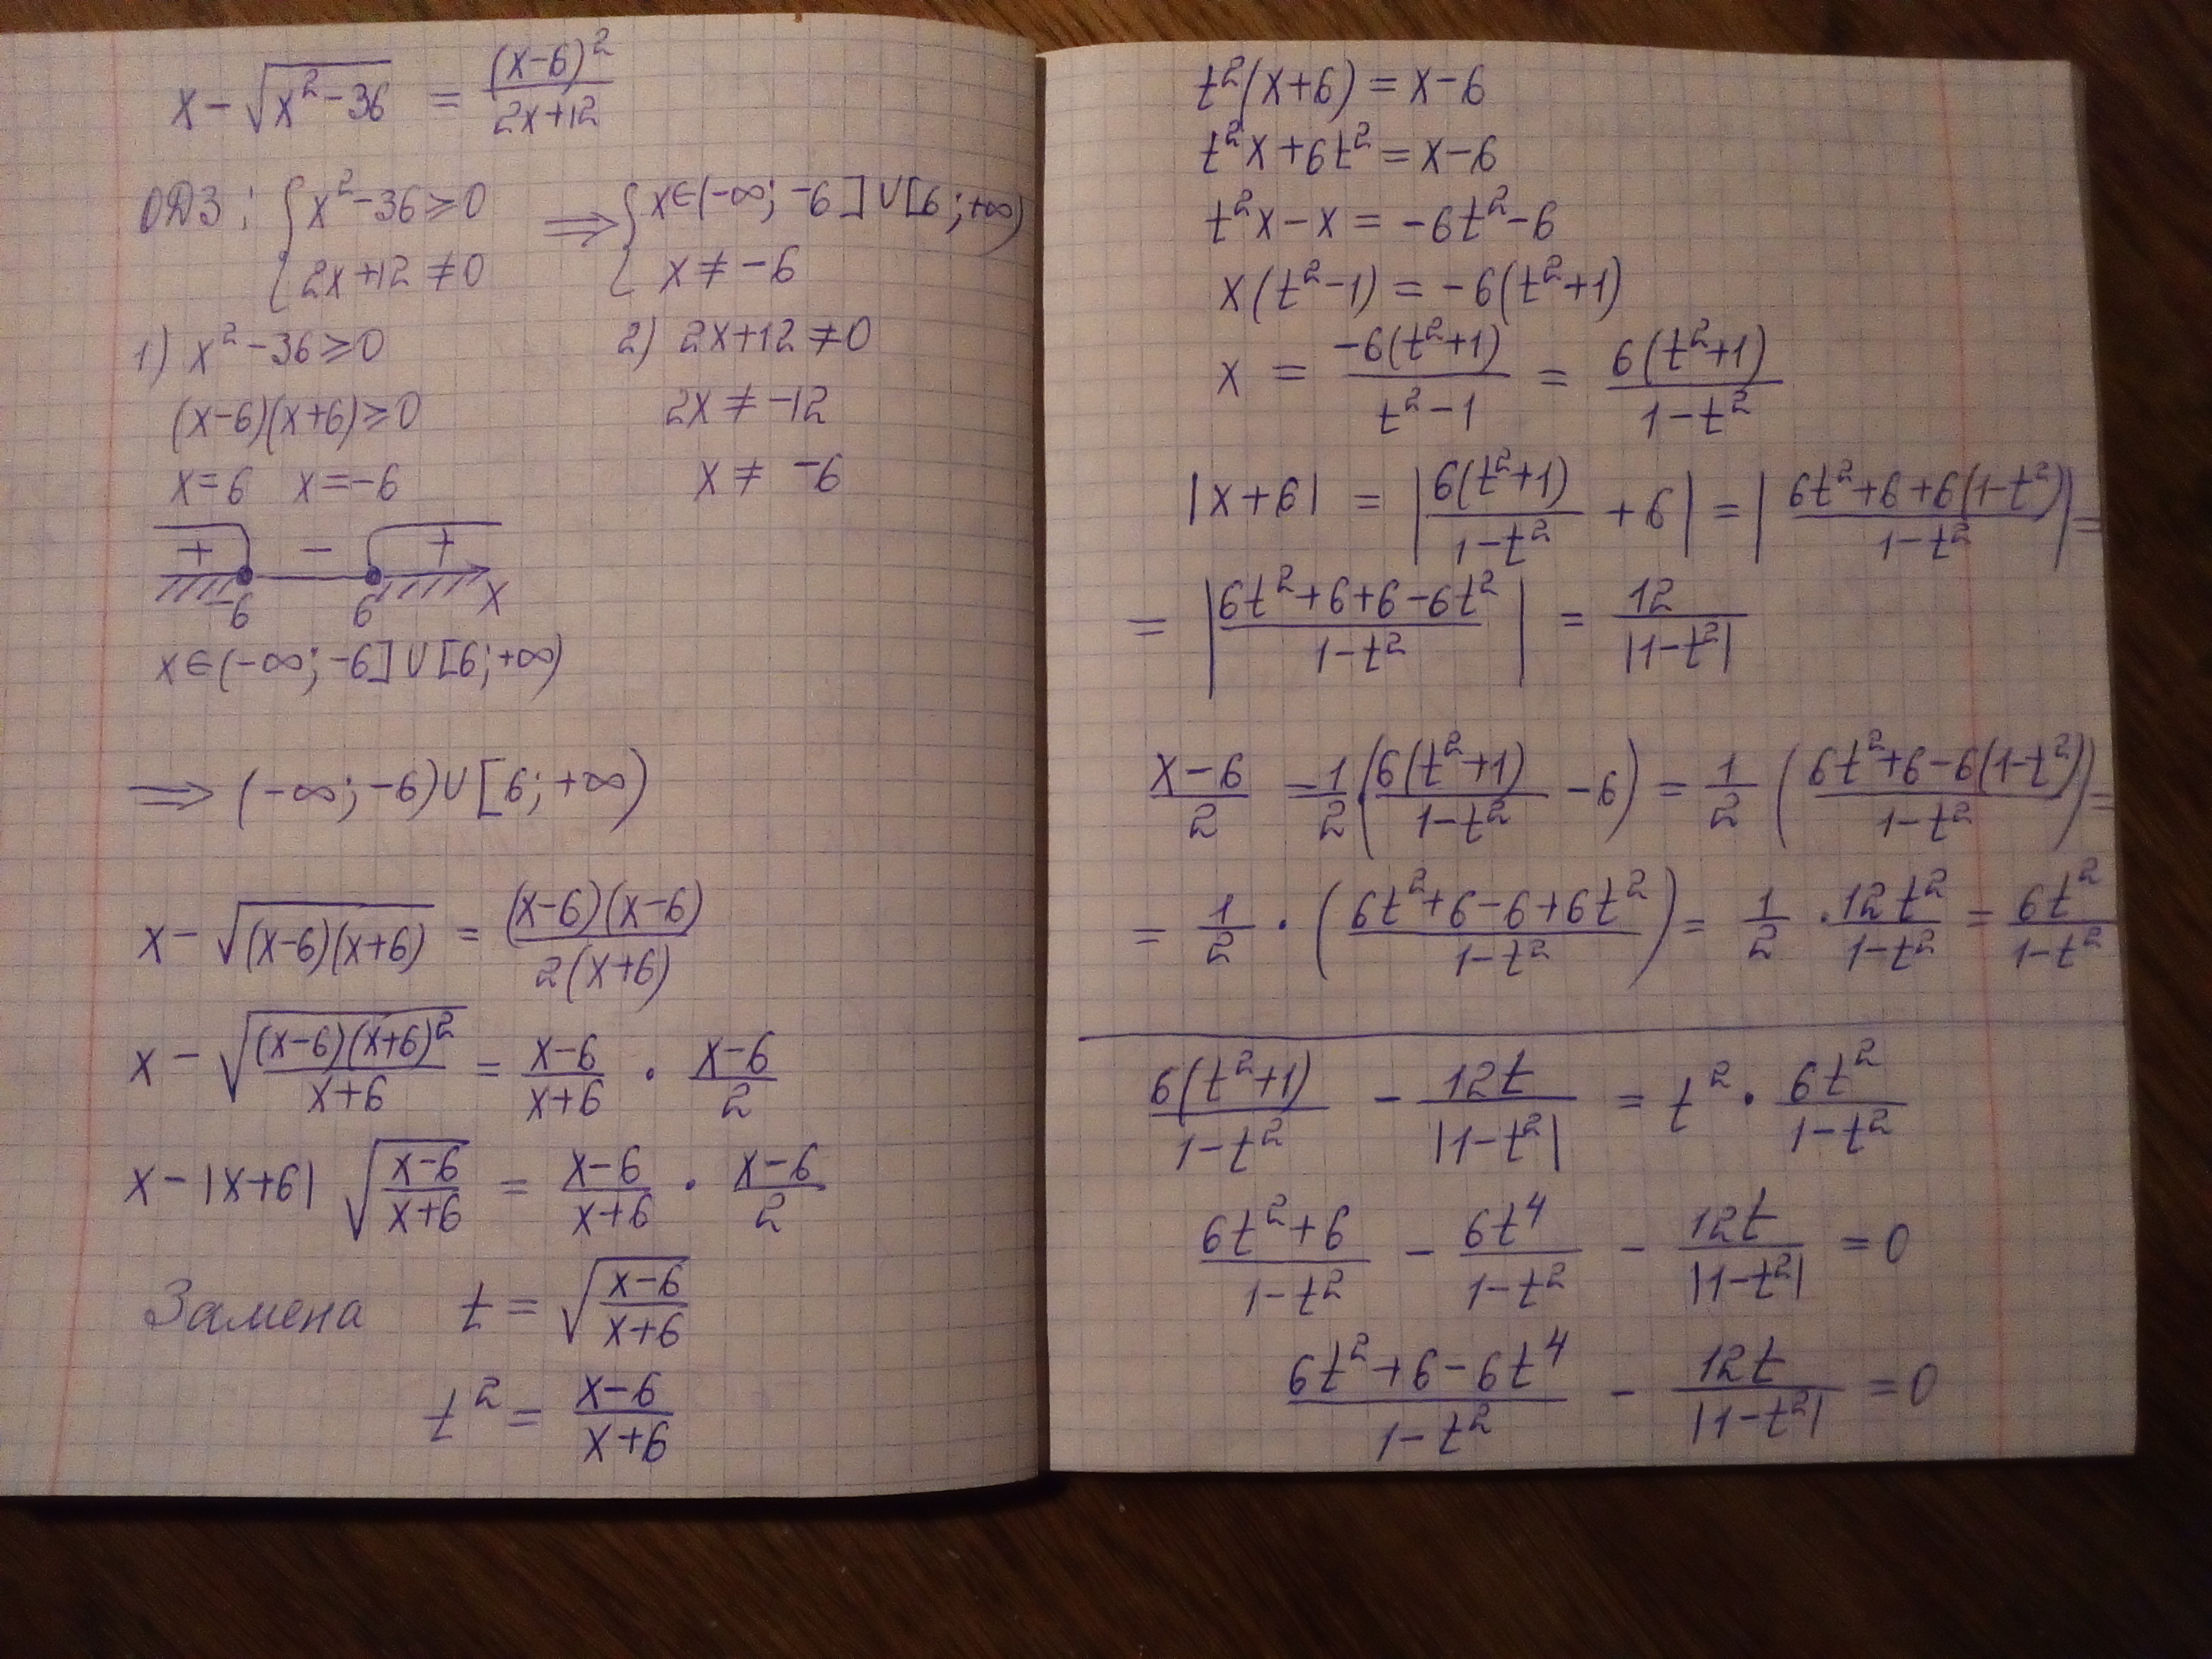 x - √(x² - 36) = (x-6)² / (2x+12)
ОДЗ: { x² - 36 ≥ 0 ⟹ { x ∈ (-∞; -6] ∪ [6; +∞)
{ 2x + 12 ≠ 0 { x ≠ -6
1) x² - 36 ≥ 0 2) 2x + 12 ≠ 0
(x-6)(x+6) ≥ 0 2x ≠ -12
x = 6 x = -6 x ≠ -6
+ - +
-6 6 x
x ∈ (-∞; -6] ∪ [6; +∞)
⟹ (-∞; -6) ∪ [6; +∞)
x - √((x-6)(x+6)) = (x-6)(x-6) / 2(x+6)
x - √((x-6)(x+6)² / (x+6)) = (x-6)/(x+6) · (x-6)/2
x - |x+6| √((x-6)/(x+6)) = (x-6)/(x+6) · (x-6)/2
Замена t = √((x-6)/(x+6))
t² = (x-6)/(x+6)
t²(x+6) = x-6
t²x + 6t² = x-6
t²x - x = -6t² - 6
x(t²-1) = -6(t²+1)
x = -6(t²+1) / (t²-1) = 6(t²+1) / (1-t²)
|x+6| = |6(t²+1)/(1-t²) + 6| = |(6t²+6+6(1-t²))/(1-t²)| =
= |(6t²+6+6-6t²)/(1-t²)| = 12/|1-t²|
(x-6)/2 = 1/2 · (6(t²+1)/(1-t²) - 6) = 1/2 ((6t²+6-6(1-t²))/(1-t²)) =
= 1/2 · ((6t²+6-6+6t²)/(1-t²)) = 1/2 · 12t²/(1-t²) = 6t²/(1-t²)
6(t²+1)/(1-t²) - 12t/|1-t²| = t² · 6t²/(1-t²)
(6t²+6)/(1-t²) - 6t⁴/(1-t²) - 12t/|1-t²| = 0
(6t²+6-6t⁴)/(1-t²) - 12t/|1-t²| = 0